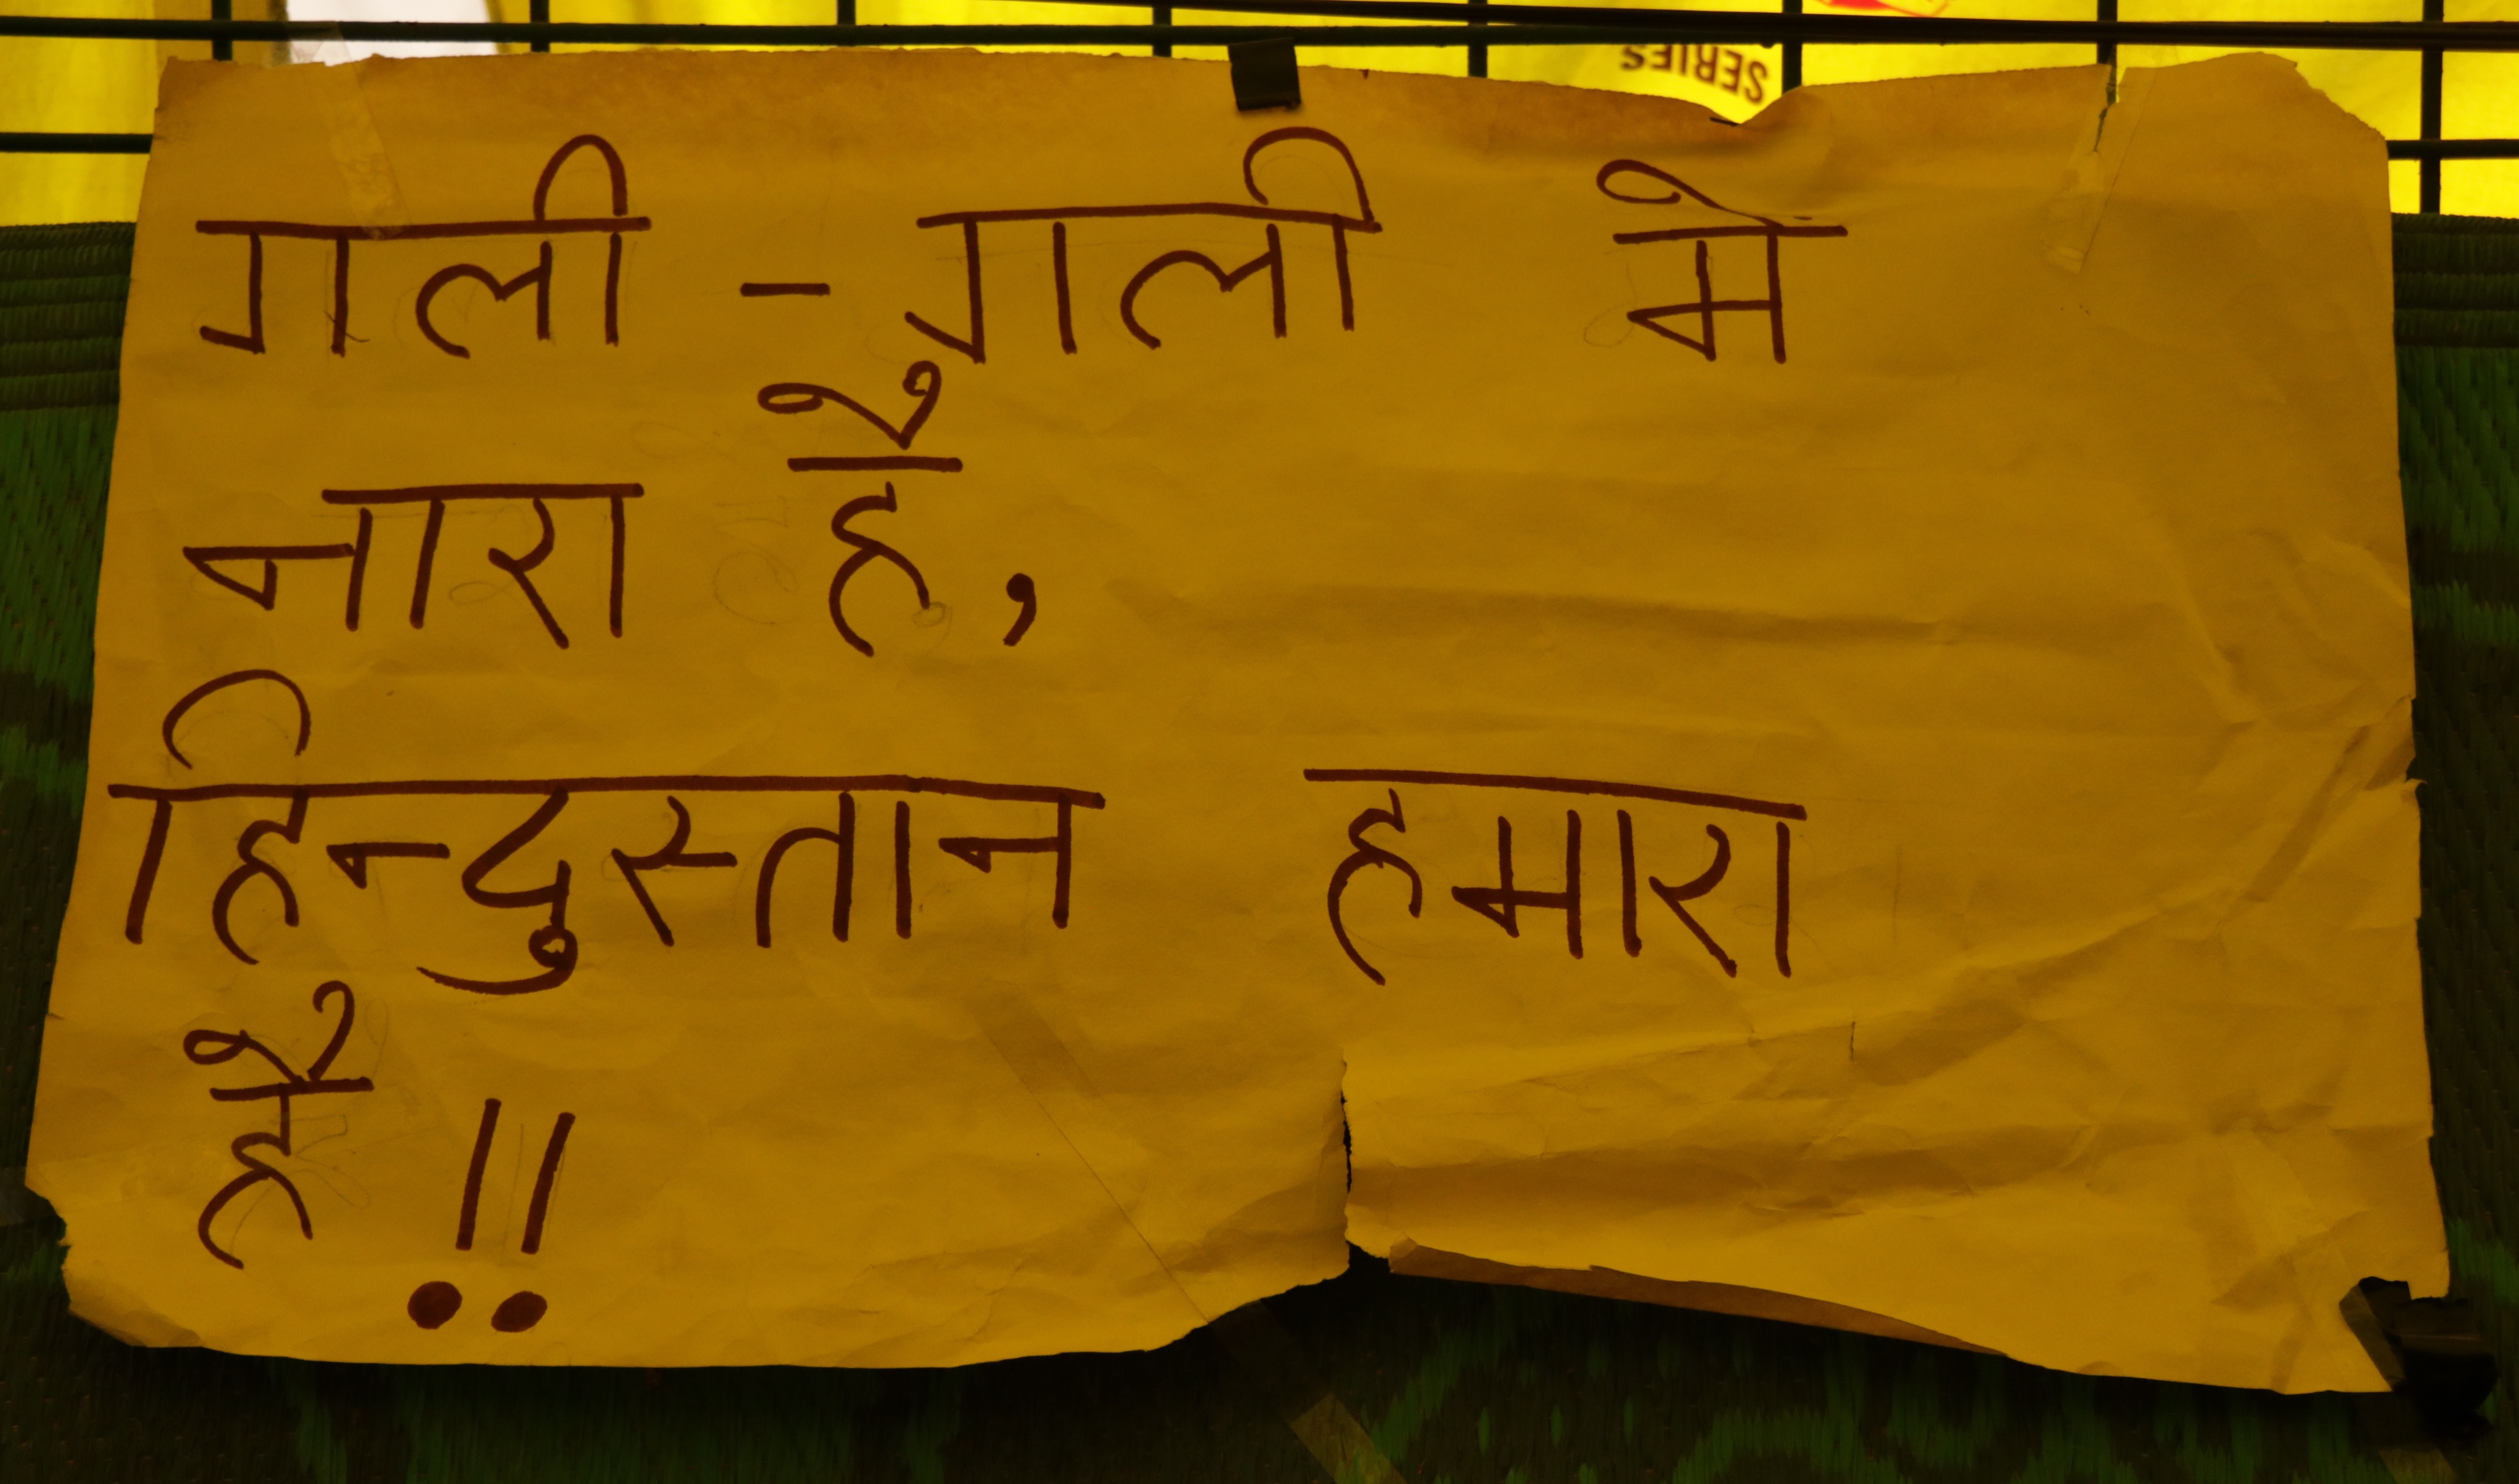 SERIES
गली - गली मे
नारा है,
हिन्दुस्तान हमारा
है !!